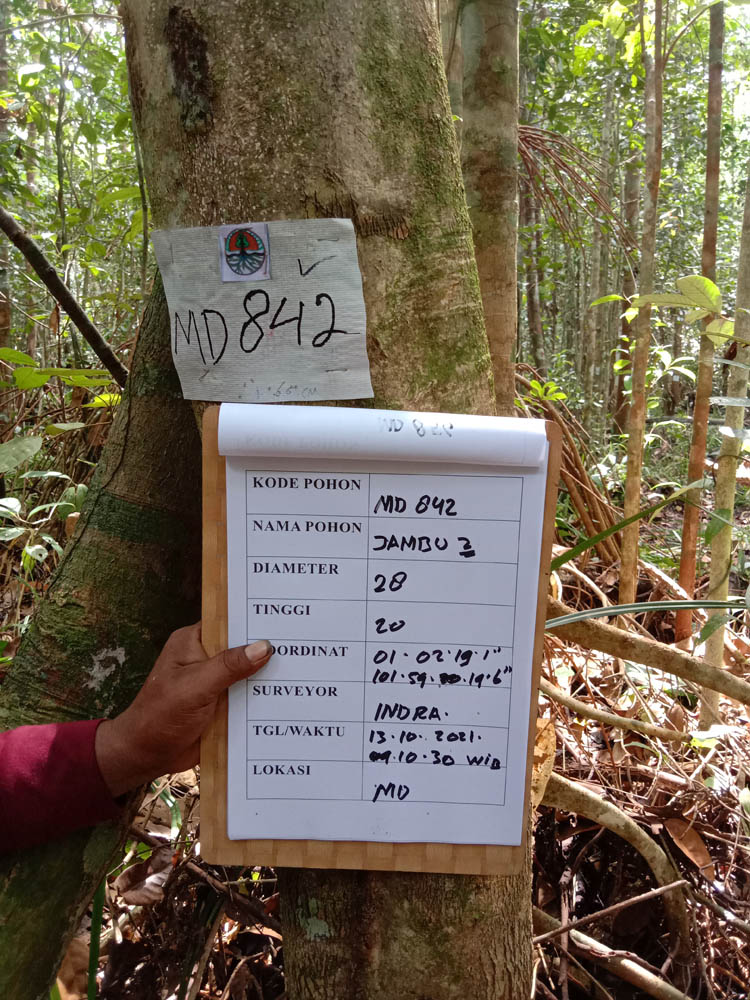 MD 842
KODE POHON MD 842
NAMA POHON JAMBU 3
DIAMETER 28
TINGGI 20
OORDINAT 01.02'19.1"
101.59.19.6"
SURVEYOR INDRA.
TGL/WAKTU 13.10.2021.
10.30 WIB
LOKASI MD